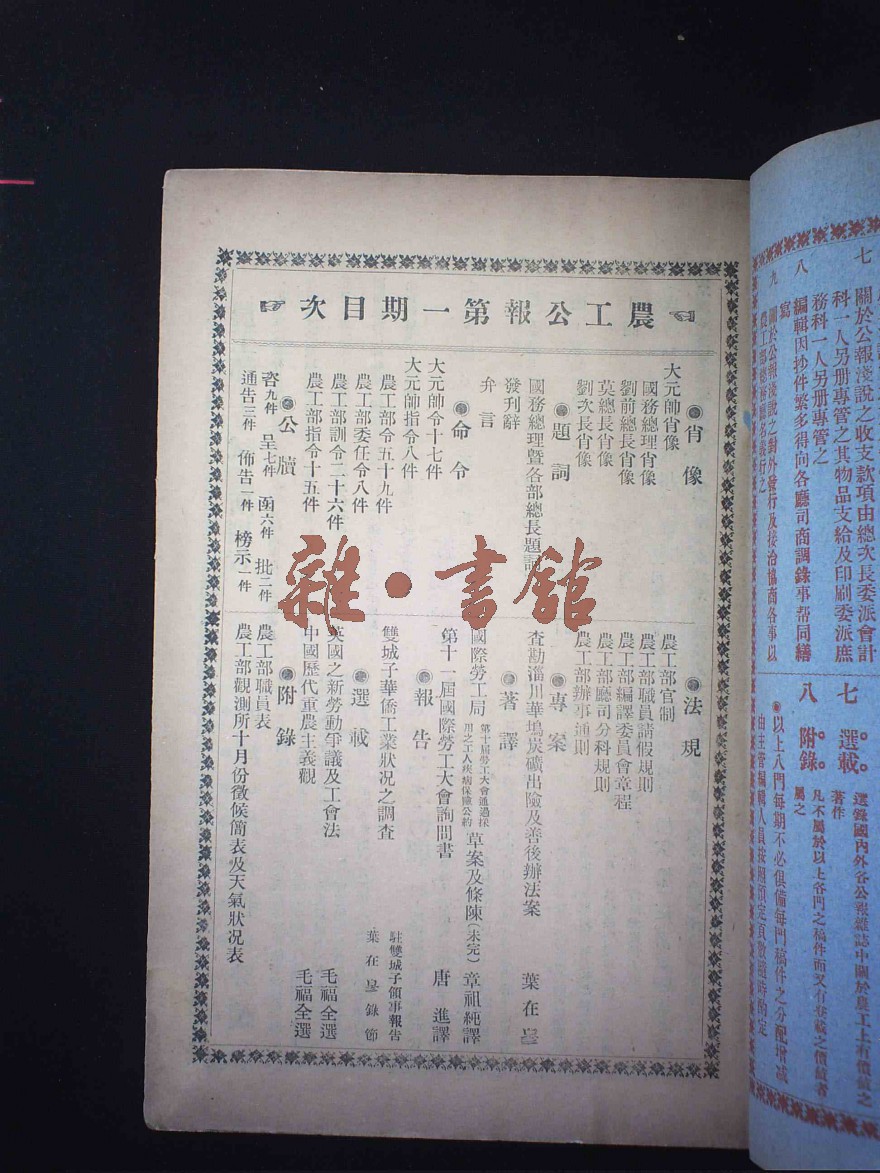 農工公報第一期目次
肖像
大元帥肖像
國務總理肖像
劉前總長肖像
莫總長肖像
劉次長肖像
題詞
國務總理暨各部總長題詞
發刊辭
弁言
命令
大元帥令十七件
大元帥指令八件
農工部令五十九件
農工部委任令八件
農工部訓令二十六件
農工部指令十五件
公牘
咨九件 呈七件 函六件 批二件
通告三件 佈告一件 榜示一件
法規
農工部官制
農工部職員請假規則
農工部編譯委員會章程
農工部廳司分科規則
農工部辦事通則
專案
查勘淄川華塢炭礦出險及善後辦法案 葉在
著譯
國際勞工局第十屆勞工大會通過採用之工人疾病保險公約草案及條陳(未完) 章祖純譯
第十一屆國際勞工大會詢問書 唐進譯
報告
雙城子華僑工業狀況之調查 駐雙城子領事報告 葉在 錄節
選載
英國之新勞動爭議及工會法 毛福全選
中國歷代重農主義觀 毛福全選
附錄
農工部職員表
農工部觀測所十月份徵候簡表及天氣狀況表
雜·書館
七 關於公報淺說之收支款項由總次長委派會計
科一人另册專管之其物品支給及印刷委派庶
務科一人另册專管之
八 編輯因抄件繁多得向各廳司商調錄事帮同繕
寫
九 關於公報淺說之對外發行及接洽協商各事以
農工部總務廳名義行之
七 選載 選錄國內外各公報雜誌中關於農工上有價值之
著作
八 附錄 凡不屬於以上各門之稿件而又有登載之價值者
屬之
以上八門每期不必俱備每門稿件之分配增減
由主管編輯人員按照預定頁數隨時酌定